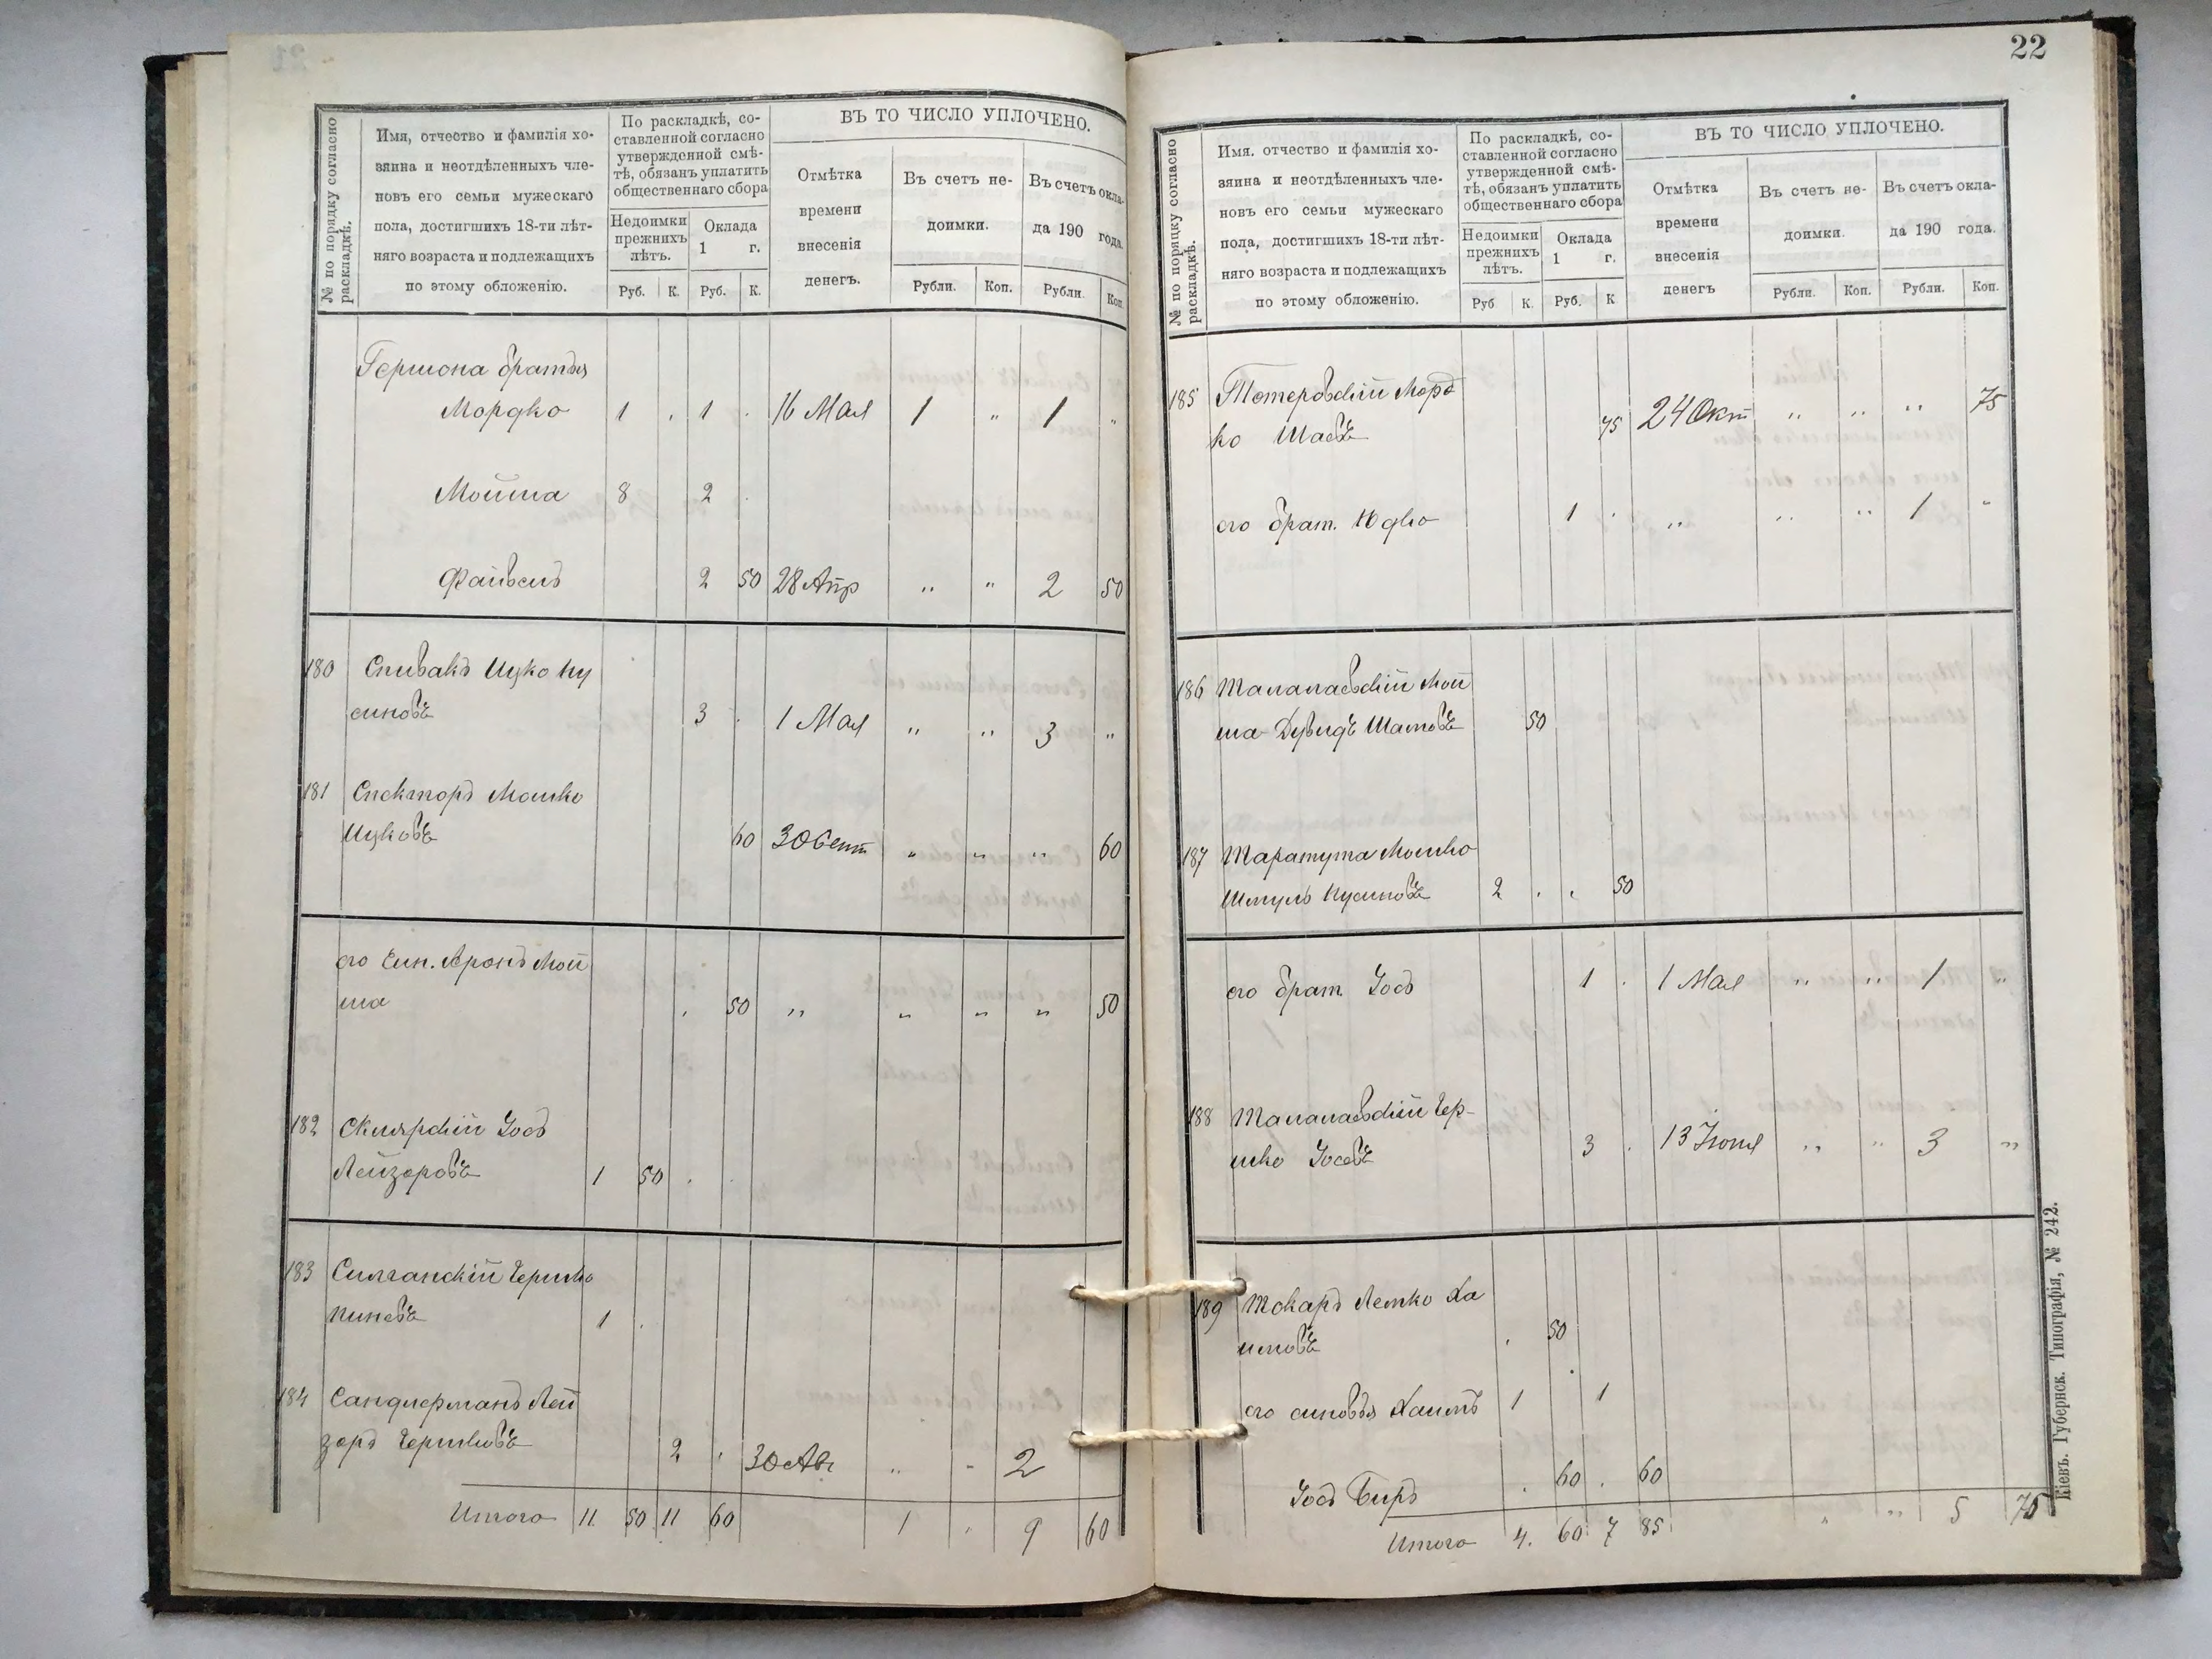 № по порядку согласно раскладкѣ.
Имя, отчество и фамилія хо-
зяина и неотдѣленныхъ чле-
новъ его семьи мужескаго
пола, достигшихъ 18-ти лѣт-
няго возраста и подлежащихъ
по этому обложенію.
По раскладкѣ, со-
ставленной согласно
утвержденной смѣ-
тѣ, обязанъ уплатить
общественнаго сбора
Недоимки
прежнихъ
лѣтъ.
Оклада
1 г.
Руб. К. Руб. К.
ВЪ ТО ЧИСЛО УПЛОЧЕНО.
Отмѣтка
времени
внесенія
денегъ.
Въ счетъ не-
доимки.
Въ счетъ окла-
да 190 года.
Рубли. Коп. Рубли. Коп.
Гершона братья
Мордко 1 . 1 . 16 Мая 1 " 1 "
Мойша 8 2 .
Файвель 2 50 28 Апр " " 2 50
180 Спивакъ Ицко Ну
симовъ 3 . 1 Мая " " 3 "
181 Спекторъ Мошко
Ицковъ 60 30 Сент " " " 60
его сын. Аронъ Мой
ша . 50 " " " " 50
182 Склярскій Іосъ
Лейзеровъ 1 50 . .
183 Смилянскій Гершко
Пинсвъ 1 .
184 Сандлерманъ Лей
зоръ Гершковъ 2 . 30 Авг " - 2
Итого 11 50 11 60 1 . 9 60
22
№ по порядку согласно раскладкѣ.
Имя. отчество и фамилія хо-
зяина и неотдѣленныхъ чле-
новъ его семьи мужескаго
пола, достигшихъ 18-ти лѣт-
няго возраста и подлежащихъ
по этому обложенію.
По раскладкѣ, со-
ставленной согласно
утвержденной смѣ-
тѣ, обязанъ уплатить
общественнаго сбора
Недоимки
прежнихъ
лѣтъ.
Оклада
1 г.
Руб К. Руб. К
ВЪ ТО ЧИСЛО УПЛОЧЕНО.
Отмѣтка
времени
внесенія
денегъ
Въ счетъ не-
доимки.
Въ счетъ окла-
да 190 года.
Рубли. Коп. Рубли. Коп.
185 Тетеровскій Морд
ко 75 24 Окт " " " 75
его брат. Юдко 1 . " " " 1 "
186 Талалаевскій Мой
ша Дувидъ 50
187 Таратута Мошко
Шмуль Нусиновъ 2 . . 50
его брат. Іосъ 1 . 1 Мая " " 1 "
188 Талалаевскій Гер-
шко Іосевъ 3 . 13 Іюня " " 3 "
189 Токаръ Лемко Ха
имовъ . 50
его сыновья Хаимъ 1 1
Іосъ Беръ . 60 . 60
Итого 4. 60 7 85 " " 5 75
Кіевъ. Губернск. Типографія, № 242.